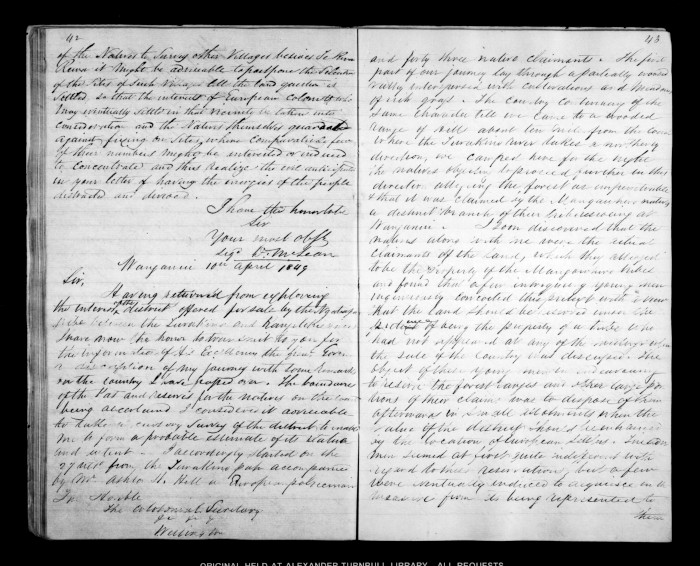 42
of the Natives to Survey other Villages besides Te Awa
Rewa it might be advisable to postpone the Selection
of the Sites of Such Villages till the land question is
Settled, so that the interests of European Colonists who
may eventually settle in that vicinity be taken into
consideration and the Natives themselves guarded
against fixing on Sites, where Comparatively few
of their numbers might be interested or induced
to concentrate and thus realize the evil anticipated
in your letter of having the energies of the people
distracted and divided.
I have the honor to be
Sir
Your most obt
Sigd D. McLean
Wanganui 10th April 1849
Sir,
Having returned from exploring
the interior of the district offered for sale by the
between the Turakina and Rangitikei
I have now the honor to transmit to you for
the information of His Excellency the Govr
a description of my journey with some remarks
on the country I have passed over. The boundaries
of the Pas and reserves for the natives on the coast
being ascertained I considered it advisable
to make a cursory Survey of the district to enable
me to form a probable estimate of its Nature
and extent. I accordingly started on the
27 ult from the Turakina pah accompanied
by Mr a European policeman
The Honble
The Colonial Secretary
Wellington
43
and forty three native claimants. The first
part of our journey lay through a partially wooded
valley interspersed with cultivations and Meadows
of rich grass. The country continuing of the
Same character till we came to a wooded
range of hills about ten miles from the coast
where the Turakina river takes a northerly
direction, we camped here for the night
the natives objecting to proceed further in this
direction alleging the forest as impenetrable
& that it was claimed by the natives
a distinct branch of their tribe residing at
Wanganui. I soon discovered that the
natives along with me were the actual
claimants of the land, which they alleged
to be the property of the tribe
and found that a few intriguing young men
ingeniously concocted this pretext with a view
that the land should be reserved under the
of being the property of a tribe who
had not appeared at any of the meetings when
the sale of the Country was discussed. The
object of these young men in endeavouring
to reserve the forest ranges and other large por
tions of their claims was to dispose of them
afterwards in small allotments when the
value of the district should be enhanced
by the location of European Settlers. The
men seemed at first quite indifferent with
regard to these reservations, but a few
were eventually induced to acquiesce in the
measure from its being represented to
them
ORIGINAL HELD AT ALEXANDER TURNBULL LIBRARY. ALL REQUESTS